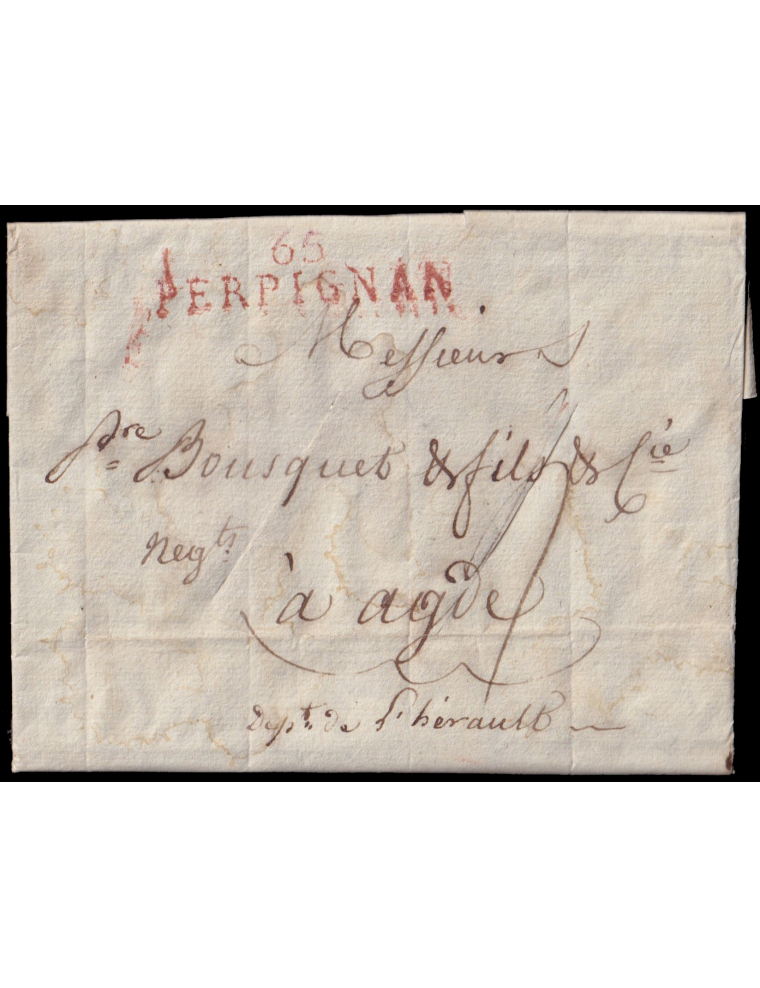 65
PERPIGNAN
Messieurs
Pre Bousquet & fils & Cie
Negts
à agde
Dept. de l'hérault